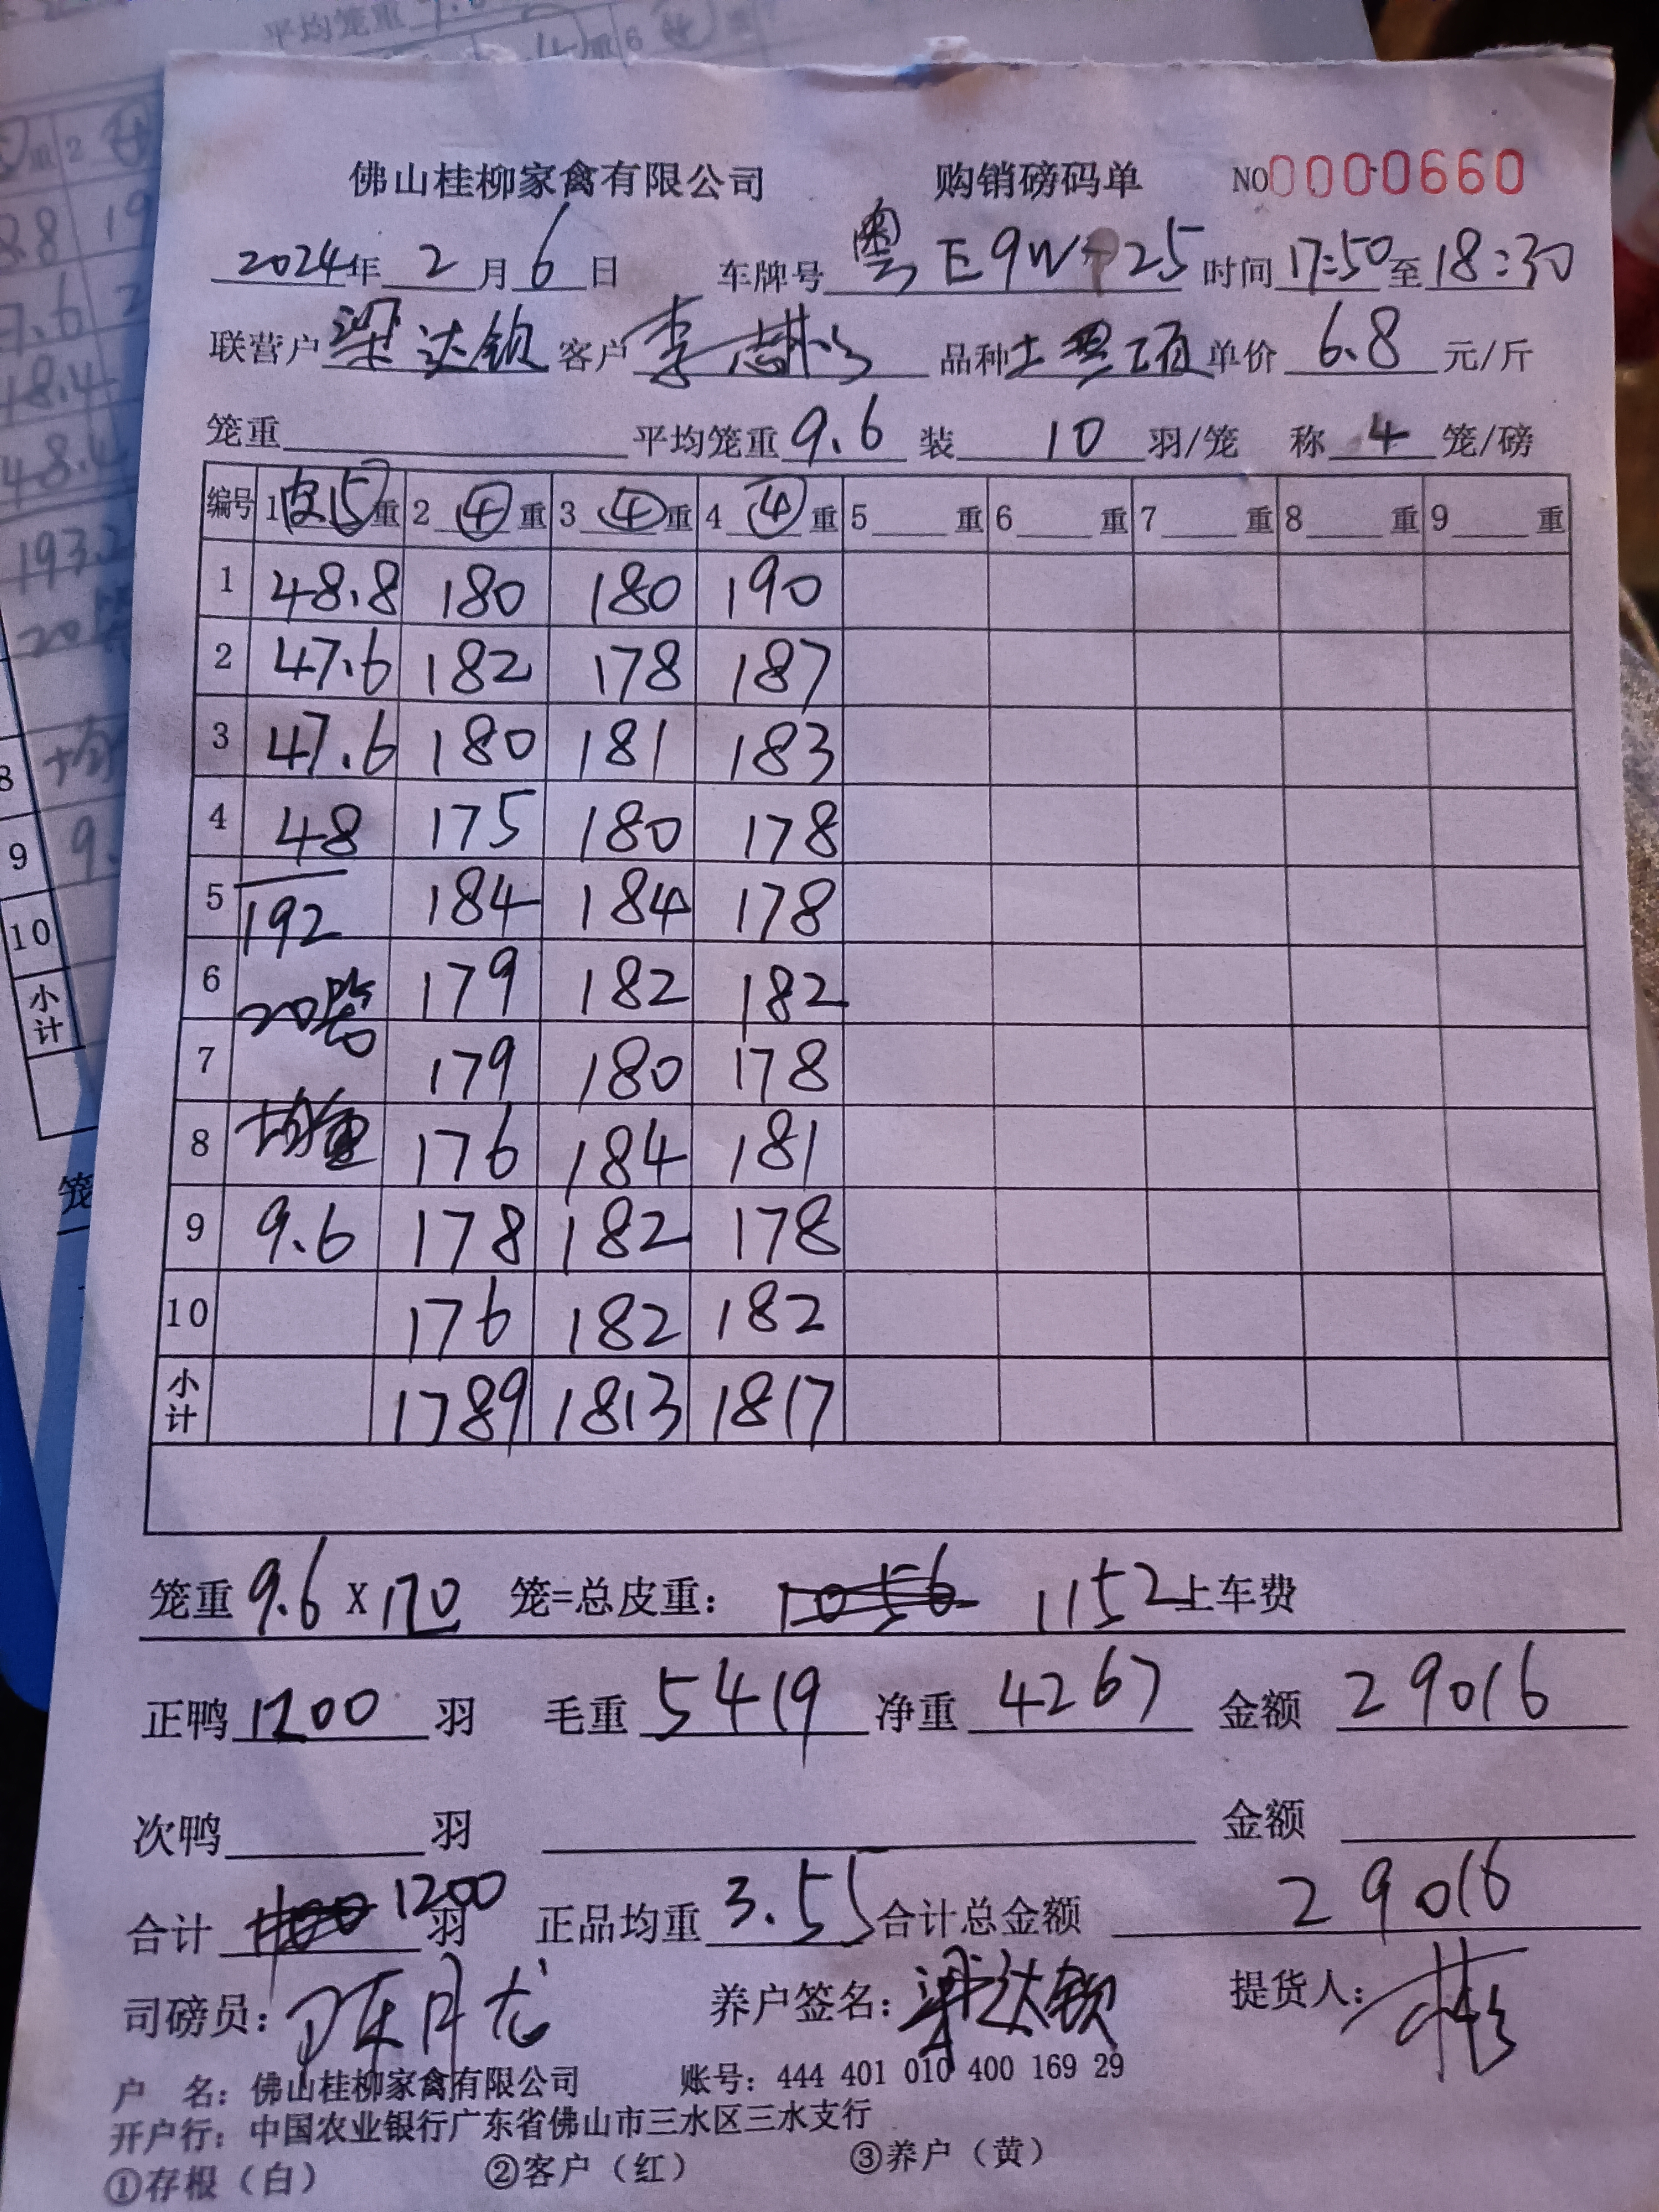 佛山桂柳家禽有限公司 购销磅码单 NO0000660
2024年 2 月 6 日 车牌号 粤E9W 25 时间 17:50 至 18:30
联营户 梁达钦 客户 李 品种 土 单价 6.8 元/斤
笼重 平均笼重 9.6 装 10 羽/笼 称 4 笼/磅
编号 1 皮15 重 2 ④ 重 3 ④ 重 4 ④ 重 5 重 6 重 7 重 8 重 9 重
1 48.8 180 180 190
2 47.6 182 178 187
3 47.6 180 181 183
4 48 175 180 178
5 192 184 184 178
6 20笼 179 182 182
7 179 180 178
8 均重 176 184 181
9 9.6 178 182 178
10 176 182 182
小计 1789 1813 1817
笼重 9.6 X 120 笼=总皮重: 1056 1152 上车费
正鸭 1200 羽 毛重 5419 净重 4267 金额 29016
次鸭 羽 金额
合计 1200 羽 正品均重 3.55 合计总金额 29016
司磅员: 陈月龙 养户签名: 梁达钦 提货人:
户 名: 佛山桂柳家禽有限公司 账号: 444 401 010 400 169 29
开户行: 中国农业银行广东省佛山市三水区三水支行
①存根（白） ②客户（红） ③养户（黄）